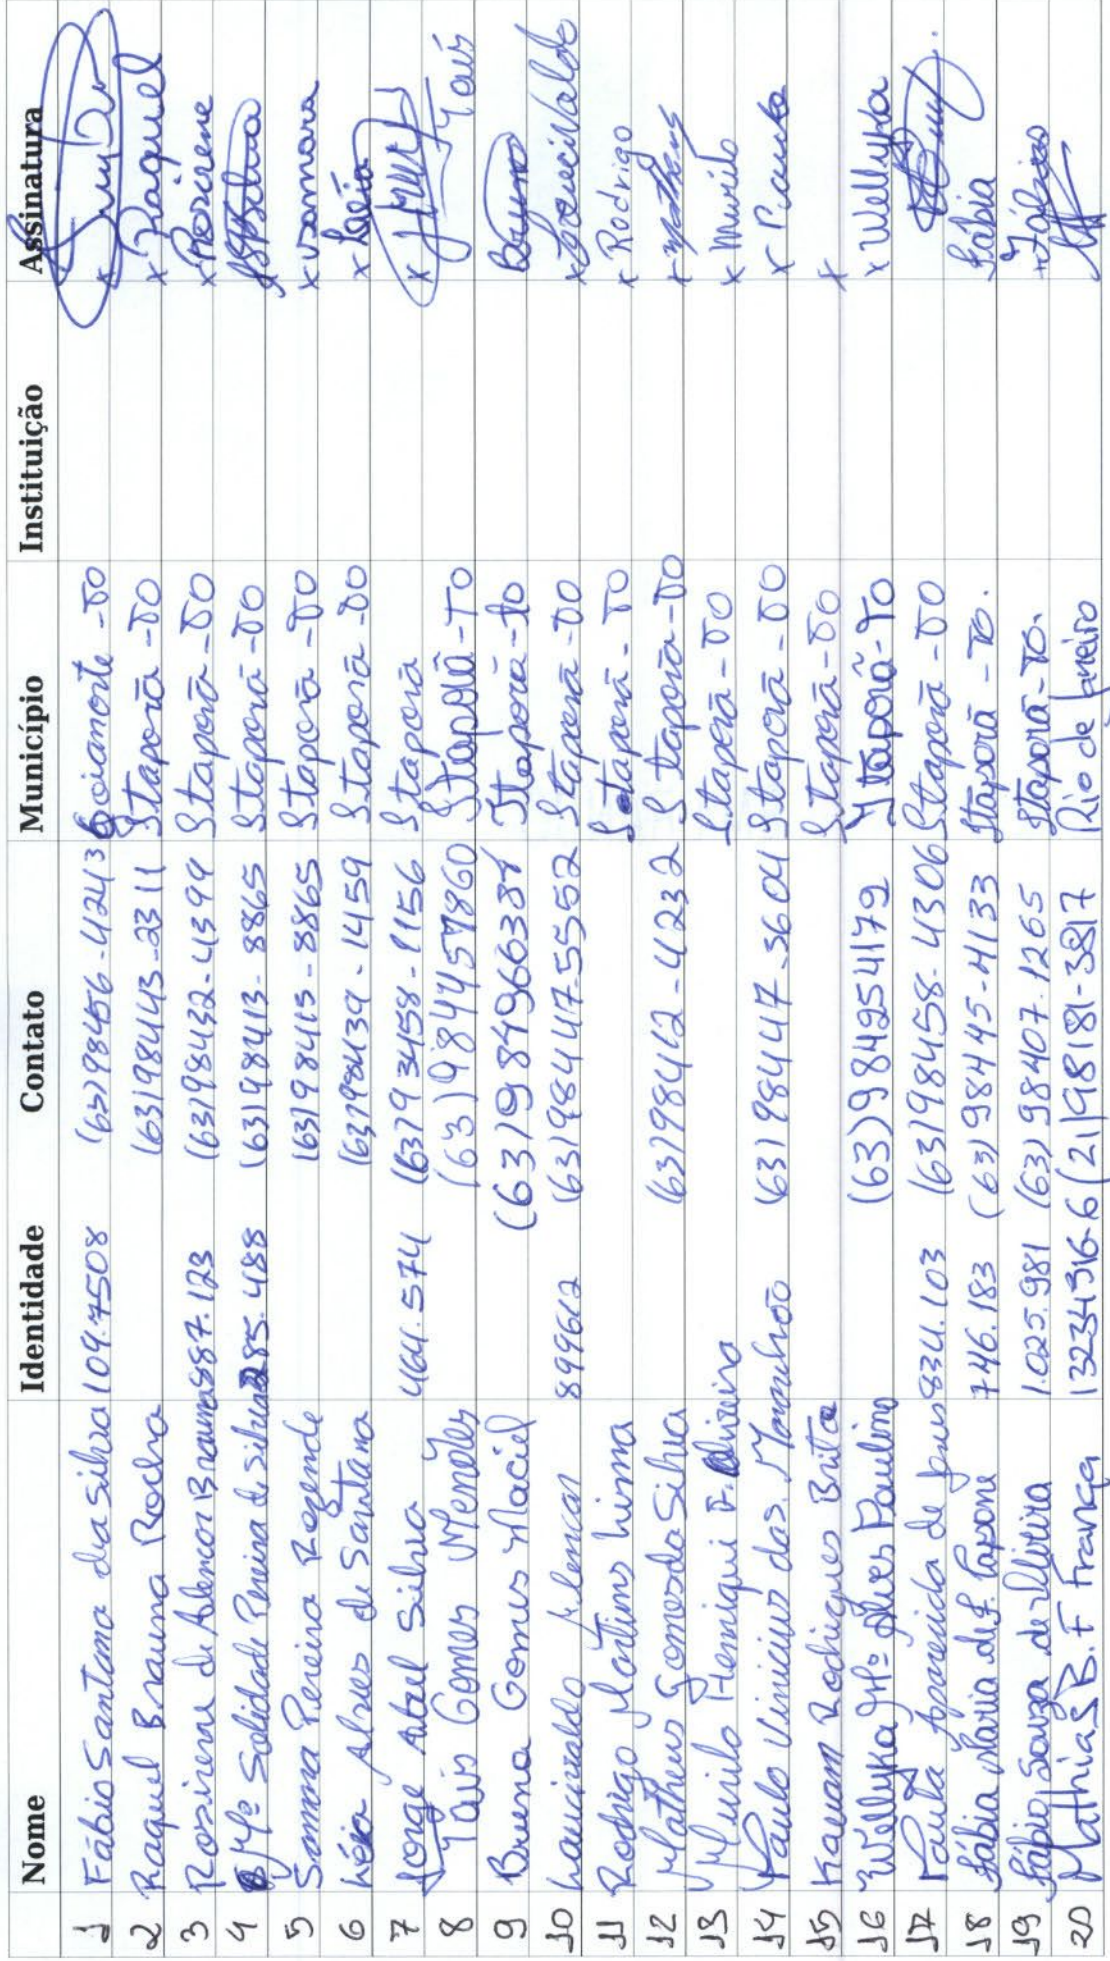 Nome Identidade Contato Município Instituição Assinatura
1 Fábio Santana da Silva 109.7508 (63) 98456-4243 Goianorte -TO
2 Raquel Brauna Rocha (63) 98443-2311 Itaporã -TO x Raquel
3 Rosirene de Alencar Brauna 887.123 (63) 98432-4399 Itaporã -TO x Rosirene
4 Mª Solidade Pereira da Silva 285.488 (63) 98413-8865 Itaporã -TO
5 Samara Pereira Rezende (63) 98413-8865 Itaporã -TO x Samara
6 Léia Alves de Santana (63) 98439-1459 Itaporã -TO x Léia
7 Jorge Abel Silva 464.574 (63) 93458-1156 Itaporã x
8 Taís Gomes Mendes (63) 984457860 Itaporã -TO Taís
9 Bruna Gomes Maciel (63) 984966387 Itaporã -to Bruna
10 Laucivaldo Alencar 899612 (63) 98447-5552 Itaporã -TO x Laucivaldo
11 Rodrigo Martins Lima Itaporã -TO x Rodrigo
12 Matheus Gomes da Silva (63) 98462-4232 Itaporã -TO x Matheus
13 Murilo Henrique F. Oliveira Itaporã -TO x Murilo
14 Paulo Vinicius das. Maranhão (63) 98447-3604 Itaporã -TO x Paulo
15 Kauam Rodrigues Brito Itaporã -TO x
16 Wellyka Mª Alves Paulino (63) 984954179 Itaporã -To x Wellyka
17 Paula Aparecida de Jesus 834.103 (63) 98458-4306 Itaporã -TO
18 Fábia Maria de F. Capone 746.183 (63) 98445-4133 Itaporã -TO. Fábia
19 Fábio Souza de Oliveira 1.025.981 (63) 98407.1265 Itaporã -TO. Fábio
20 Mathias B. F França 13234316-6 (21) 98181-3817 Rio de Janeiro